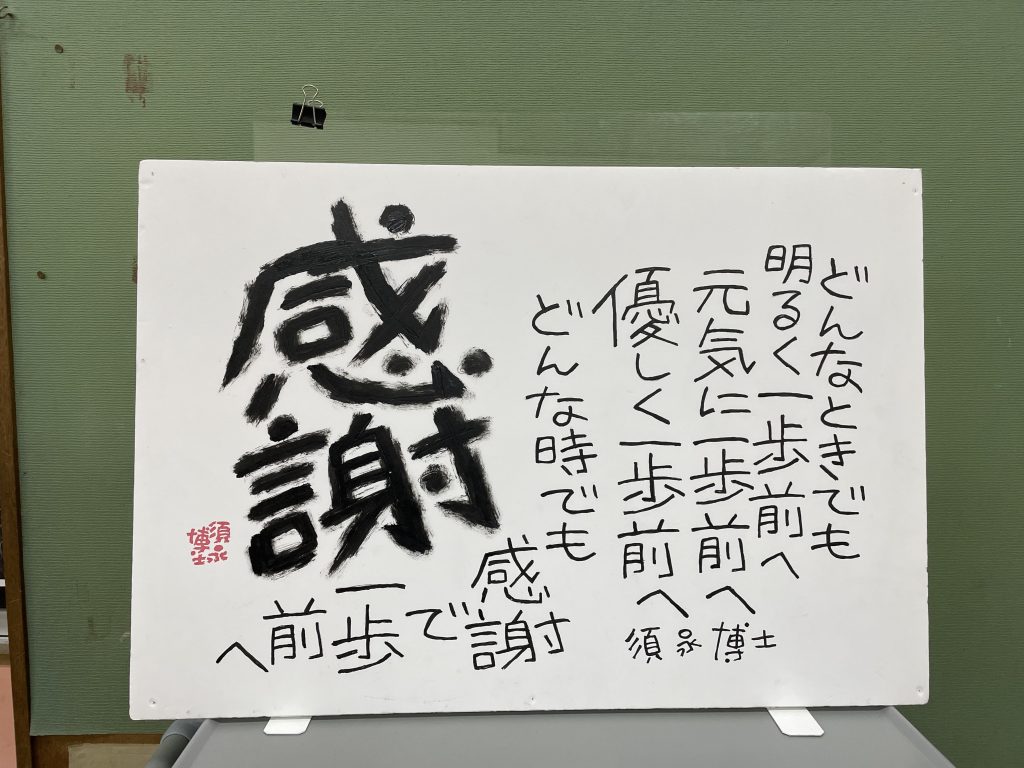 どんなときでも
明るく一歩前へ
元気に一歩前へ
優しく一歩前へ
どんな時でも
感謝で一歩前へ
須永博士
感謝
須永
博士